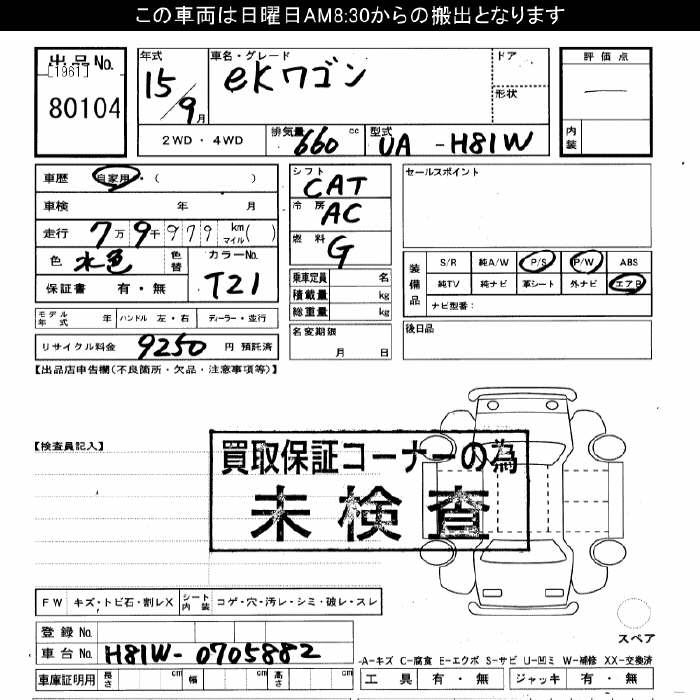 この車両は日曜日AM8:30からの搬出となります
出品No.
[1961]
80104
年式 15/9月
車名・グレード ekワゴン
ドア
形状
評価点
内装
2WD・4WD
排気量 660 cc
型式 UA-H81W
車歴 自家用・( )
車検 年 月
走行 7万9千979 km マイル( )
色 水色 色替 カラーNo. T21
保証書 有・無
シフト CAT
冷房 AC
燃料 G
乗車定員 名
積載量 kg
総重量 kg
名変期限 月 日
セールスポイント
装備品
S/R 純A/W P/S P/W ABS
純TV 純ナビ 革シート 外ナビ エアB
ナビ型番:
後日品
モデル年式 年 ハンドル 左・右 ディーラー・並行
リサイクル料金 9250 円 預託済
【出品店申告欄(不良箇所・欠品・注意事項等)】
【検査員記入】
買取保証コーナーの為
未検査
FW キズ・トビ石・割レX シート内装 コゲ・穴・汚レ・シミ・破レ・スレ
登録No.
車台No. H81W-0705882
車庫証明用 長さ cm 幅 cm 高さ cm
スペア
-A-キズ C-腐食 E-エクボ S-サビ U-凹ミ W-補修 XX-交換済
工具 有・無 ジャッキ 有・無